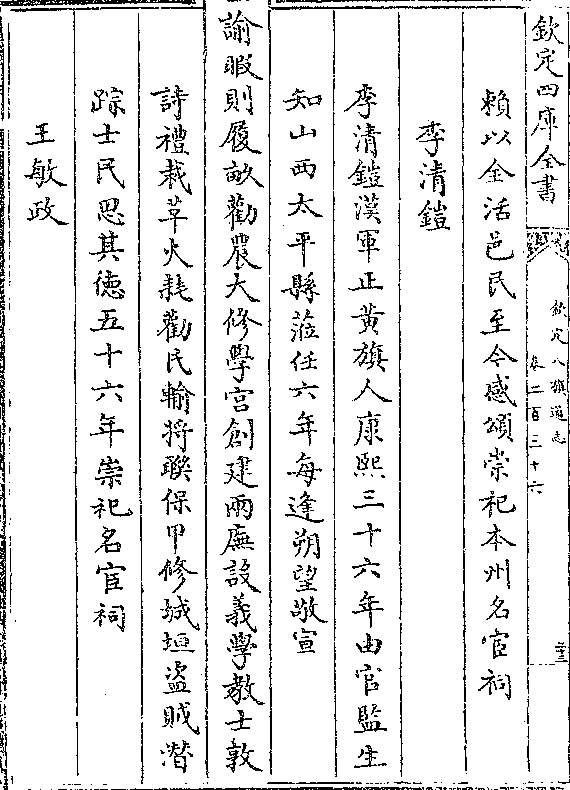 欽定四庫全書
欽定八旗通志
卷二百三十六
二十三
賴以全活邑民至今感頌崇祀本州名宦祠
李清鎧
李清鎧漢軍正黃旗人康熙三十六年由官監生
知山西太平縣蒞任六年每逢朔望敬宣
諭暇則履畝勸農大修學宮創建兩廡設義學教士敦
詩禮栽革火耗勸民輸將聯保甲修城垣盜賊潛
踪士民思其德五十六年崇祀名宦祠
王敏政